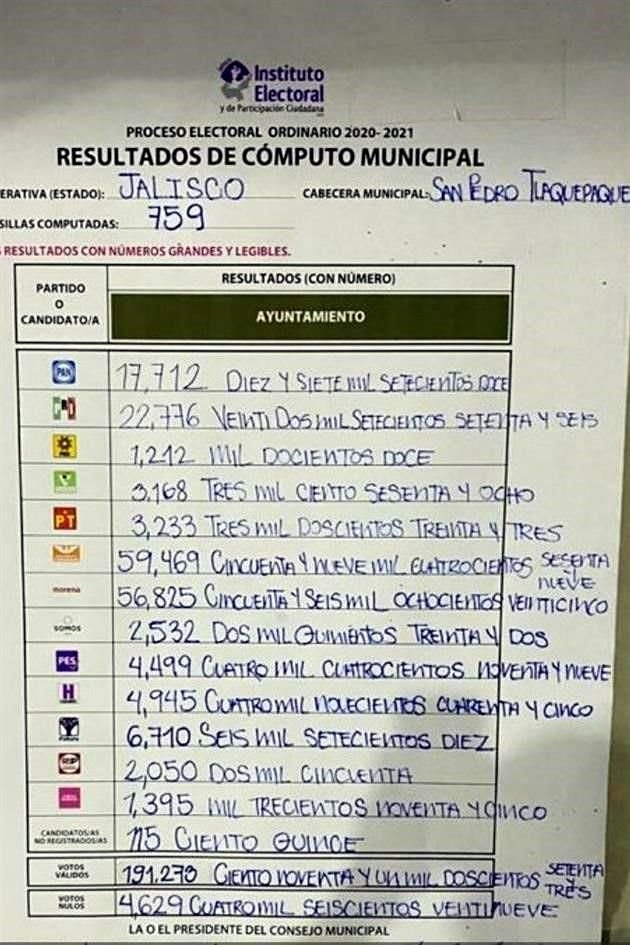 Instituto
Electoral
y de Participación Ciudadana
PROCESO ELECTORAL ORDINARIO 2020-2021
RESULTADOS DE CÓMPUTO MUNICIPAL
ERATIVA (ESTADO): JALISCO CABECERA MUNICIPAL: SAN PEDRO TLAQUEPAQUE
SILLAS COMPUTADAS: 759
S RESULTADOS CON NÚMEROS GRANDES Y LEGIBLES.
PARTIDO
O
CANDIDATO/A
RESULTADOS (CON NÚMERO)
AYUNTAMIENTO
PAN 17,712 DIEZ Y SIETE MIL SETECIENTOS DOCE
PRI 22,776 VEINTI DOS MIL SETECIENTOS SETENTA Y SEIS
1,212 MIL DOCIENTOS DOCE
3,168 TRES MIL CIENTO SESENTA Y OCHO
PT 3,233 TRES MIL DOSCIENTOS TREINTA Y TRES
59,469 CINCUENTA Y NUEVE MIL CUATROCIENTOS SESENTA Y NUEVE
morena 56,825 CINCUENTA Y SEIS MIL OCHOCIENTOS VEINTICINCO
SOMOS 2,532 DOS MIL QUINIENTOS TREINTA Y DOS
PES 4,499 CUATRO MIL CUATROCIENTOS NOVENTA Y NUEVE
H 4,945 CUATRO MIL NOVECIENTOS CUARENTA Y CINCO
6,710 SEIS MIL SETECIENTOS DIEZ
RSP 2,050 DOS MIL CINCUENTA
1,395 MIL TRECIENTOS NOVENTA Y CINCO
CANDIDATOS/AS
NO REGISTRADOS/AS 115 CIENTO QUINCE
VOTOS
VÁLIDOS 191,273 CIENTO NOVENTA Y UN MIL DOSCIENTOS SETENTA Y TRES
VOTOS
NULOS 4,629 CUATRO MIL SEISCIENTOS VENTINUEVE
LA O EL PRESIDENTE DEL CONSEJO MUNICIPAL